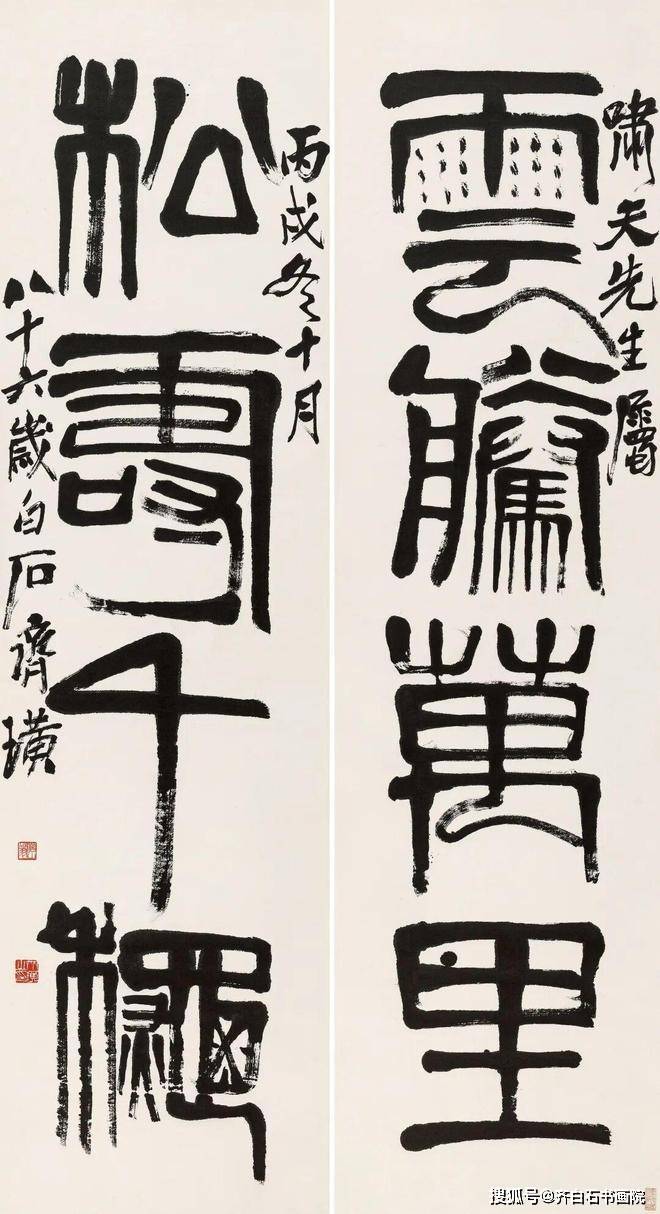 嘯天先生屬
雲騰萬里
丙戌冬十月
松壽千龝
八十六歲白石齊璜
搜狐号@齐白石书画院